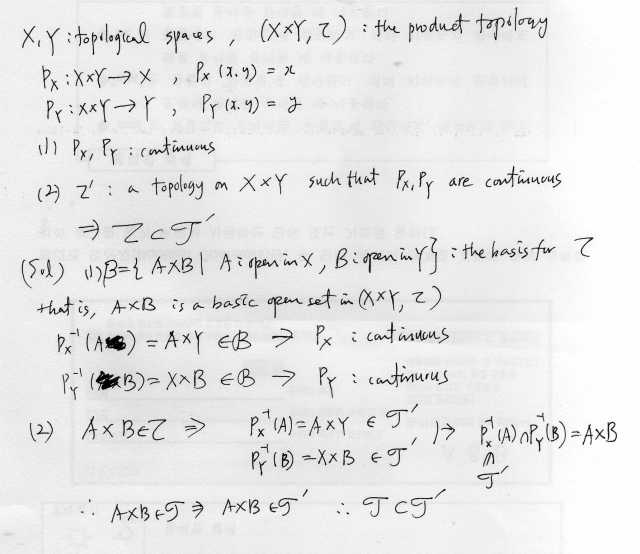 X, Y : topological spaces , (X×Y, τ) : the product topology
P_X : X×Y → X , P_X (x, y) = x
P_Y : X×Y → Y , P_Y (x, y) = y
(1) P_X, P_Y : continuous
(2) τ' : a topology on X×Y such that P_X, P_Y are continuous
⇒ τ ⊂ 𝒯'
(Sol) (1) β = { A×B | A : open in X , B : open in Y } : the basis for τ
that is, A×B is a basic open set in (X×Y, τ)
P_X^{-1} (A) = A×Y ∈ B → P_X : continuous
P_Y^{-1} (B) = X×B ∈ B → P_Y : continuous
(2) A×B ∈ τ ⇒ P_X^{-1}(A) = A×Y ∈ 𝒯' ) → P_X^{-1}(A) ∩ P_Y^{-1}(B) = A×B
P_Y^{-1}(B) = X×B ∈ 𝒯' ∩
𝒯'
∴ A×B ∈ 𝒯 ⇒ A×B ∈ 𝒯' ∴ 𝒯 ⊂ 𝒯'